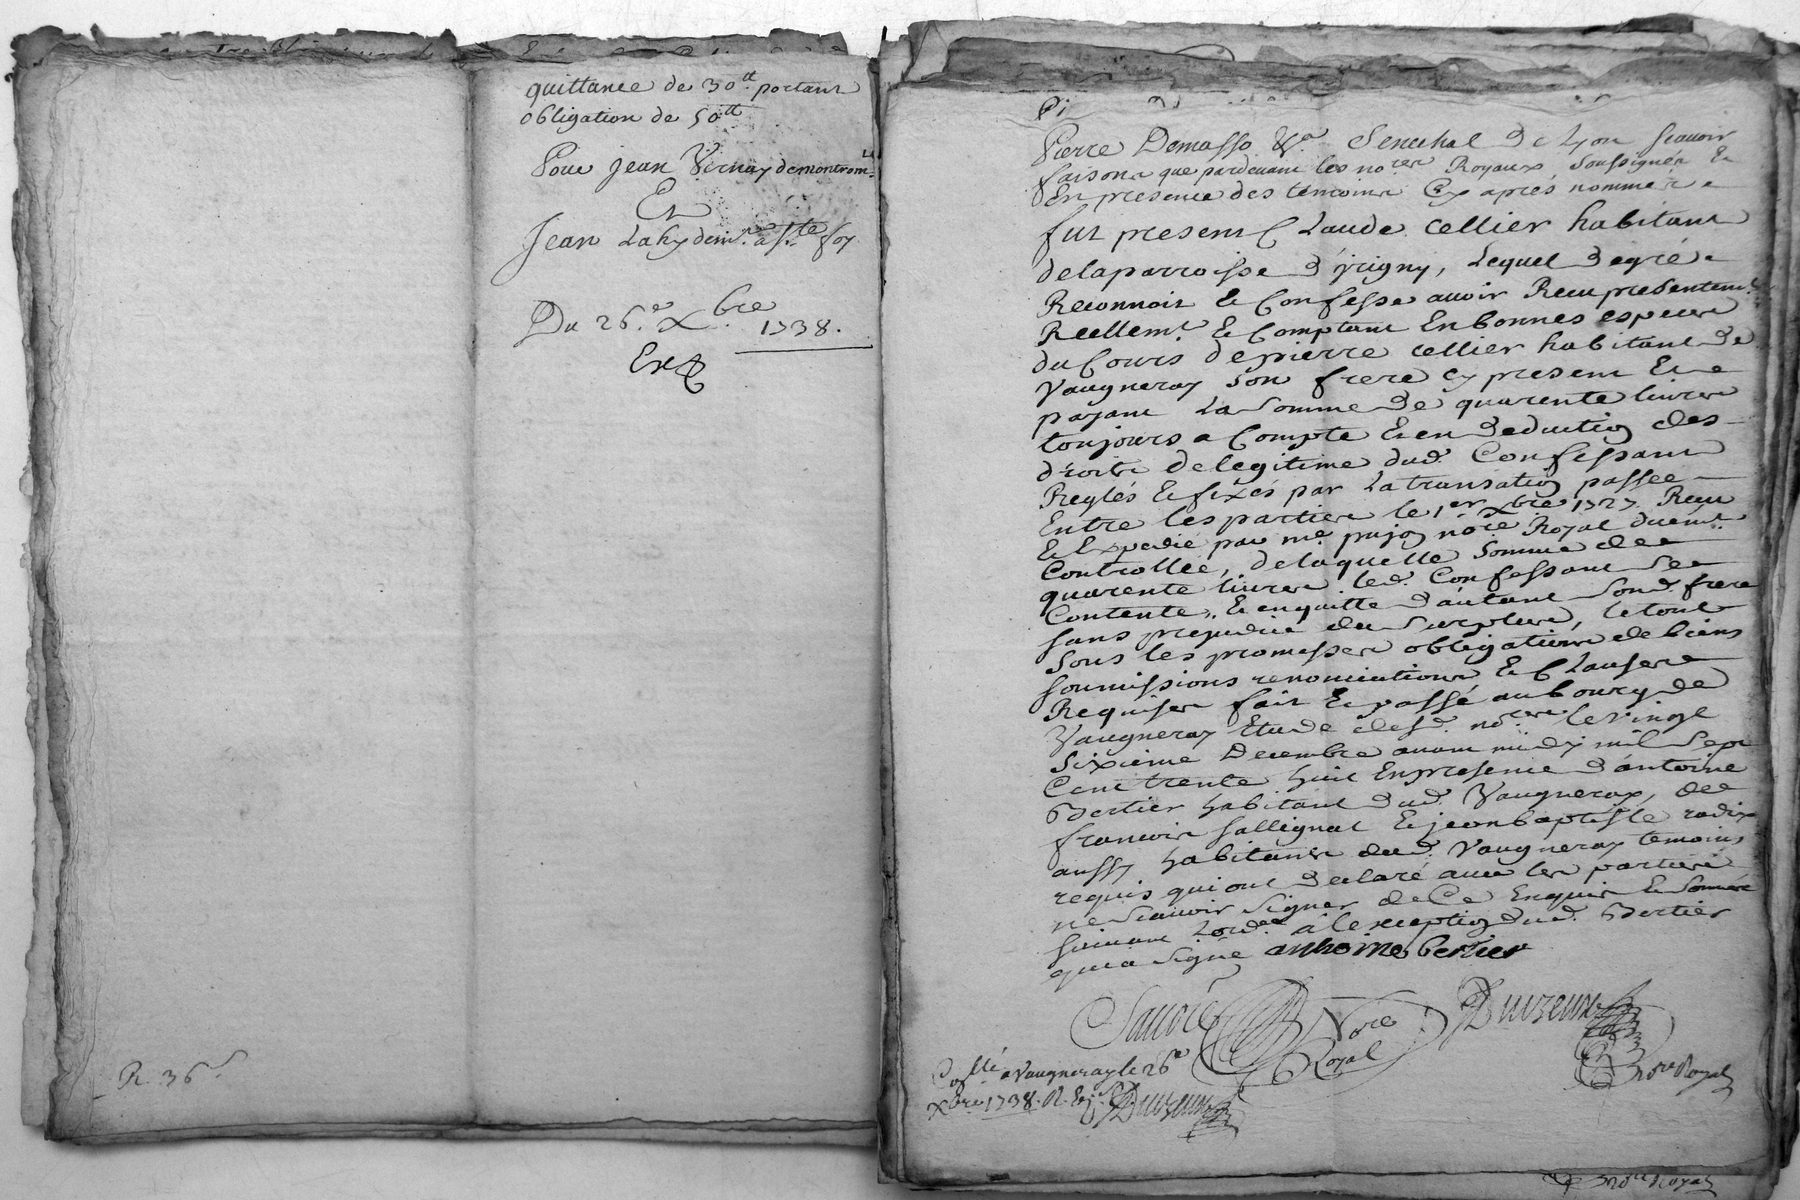 quittance de 30.tt portant
obligation de 50tt
Pour Jean Vernay demontrom.
Et
Jean Lahy dem.t a S.te foy
Du 26.e Xbre 1738.
Exp
R. 36.s
Pi
Pierre Demasso &.a Senechal de Lyon scavoir
faisons que pardevant les no.res Royaux soussignés Et
En presence des temoins Cy aprés nommés
fut present Claude Cellier habitant
de la parroisse d'yrigny, Lequel de gré
Reconnoit & Confesse avoir Receu presentem.t
Reellem.t & Comptant En bonnes especes
du Cours de pierre Cellier habitant de
Vaugneray son frere cy present Et
payant La Somme de quarente livres
toujours a Compte & en deduction des
droits de legitime dud. Confessant
Reglés & fixés par La transation passée
Entre les parties le 1er xbre 1727. Receu
& Expedié par me pujon no.re Royal duem.t
Controllée, de laquelle Somme de
quarente livres led. Confessant se
Contente, & en quitte d'autant sond. frere
sans prejudice du Surplus, le tout
sous les promesses obligations de biens
soumissions renonciations & Clauses
Requises fait & passé au bourg de
Vaugneray Etude desd. no.res le vingt
sixieme Decembre avant midy mil Sept
Cent trente huit En presence d'antoine
Bertier habitant dud. Vaugneray, de
francois sallignat & jean baptiste radix
aussy habitants dud. Vaugneray temoins
requis qui ont declaré avec les parties
ne Scavoir Signer de Ce Enquis & Sommés
suivant L'ord.ce à l'exception dud. Bertier
qui a signé anthoine bertier
Savoie Nore Royal
Duvzeux Nore Royal
Co.llé a Vaugneray le 26e
xbre 1738. R.
Duvzeux
Nore Royal